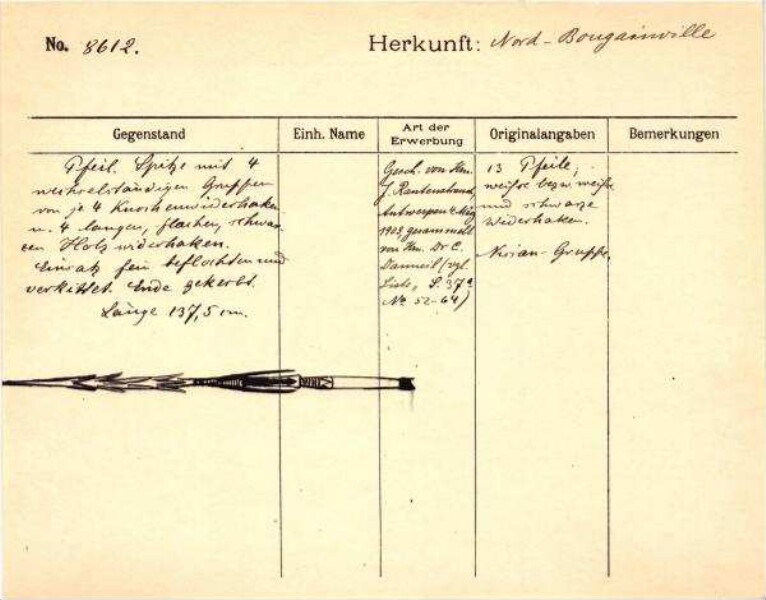 No. 8612.
Herkunft: Nord-Bougainville
Gegenstand
Einh. Name
Art der
Erwerbung
Originalangaben
Bemerkungen
Pfeil. Spitze mit 4
wechselständigen Gruppen
von je 4 Knochenwiderhaken
u. 4 langen, flachen, schwar-
zen Holzwiderhaken.
Einsatz fein beflochten und
verkittet. Ende gekerbt.
Länge 137,5 cm.
Gesch. von Hrn.
J. Rautenstrauch,
Antwerpen 4. März
1903, gesammelt
von Hrn. Dr C.
Danneil (vgl.
Liste, S. 37a
No 52-64)
13 Pfeile,
weisse bezw. weisse
und schwarze
Widerhaken.
Nissan-Gruppe.